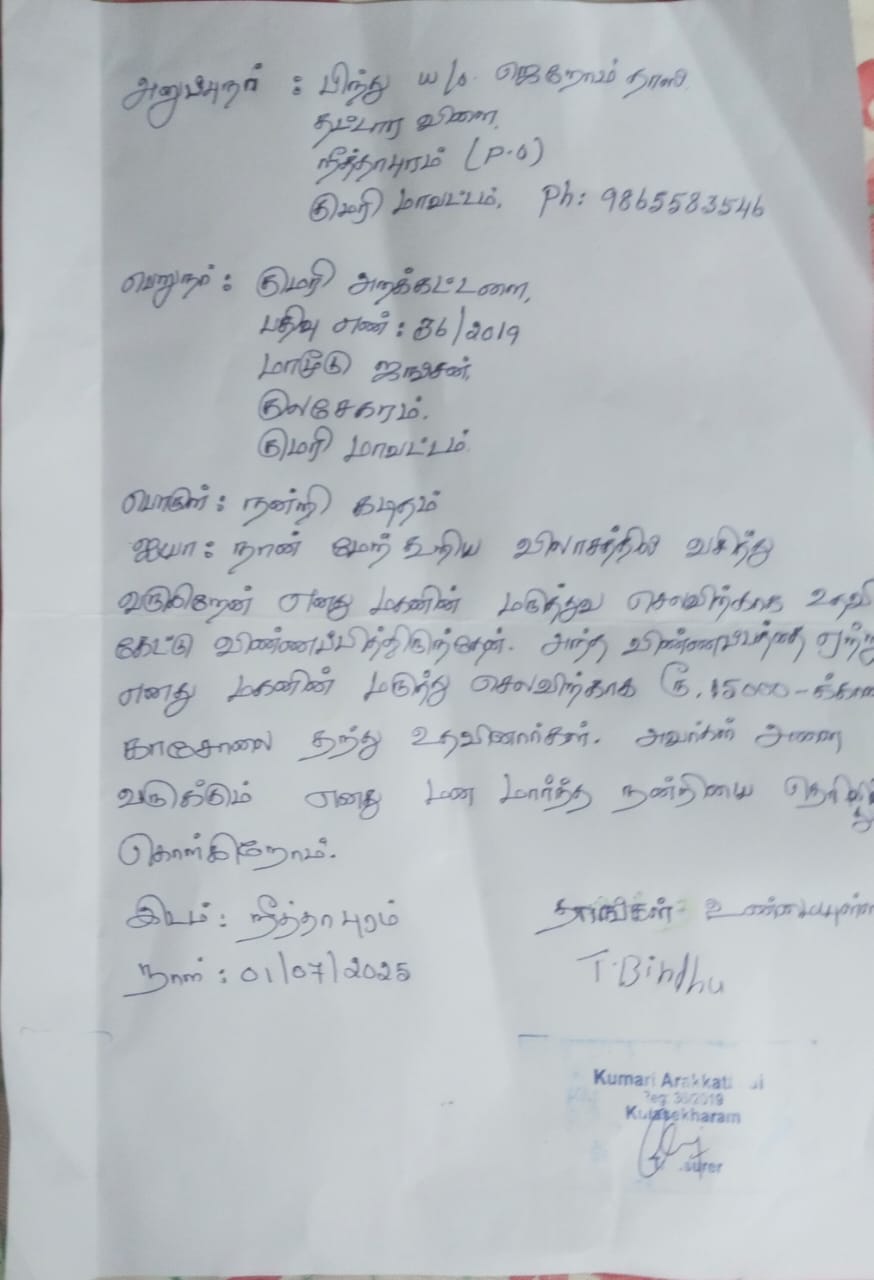 அனுப்புநர் : பிந்து W/o. ஜெறோம் தாஸ்
தட்டார விளை,
நீத்தாபுரம் (P.O)
குமரி மாவட்டம். Ph: 9865583546
பெறுநர் : குமரி அறக்கட்டளை,
பதிவு எண் : 36/2019
மாமூடு ஜங்சன்,
குலசேகரம்.
குமரி மாவட்டம்.
பொருள் : நன்றி கடிதம்
ஐயா : நான் மேற்கூறிய விலாசத்தில் வசித்து
வருகிறேன் எனது மகனின் மருத்துவ செலவிற்காக உதவி
கேட்டு விண்ணப்பித்திருந்தேன். அந்த விண்ணப்பத்தை ஏற்று
எனது மகனின் மருந்து செலவிற்காக ரூ. 15000-க்கான
காசோலை தந்து உதவினார்கள். அவர்கள் அனை
வருக்கும் எனது மன மார்ந்த நன்றியை தெரிவித்து
கொள்கிறோம்.
இடம் : நீத்தாபுரம் தாங்கள் உண்மையுள்ள
நாள் : 01/07/2025 T. Bindhu
Kumari
Reg: 36/2019
Kulasekharam